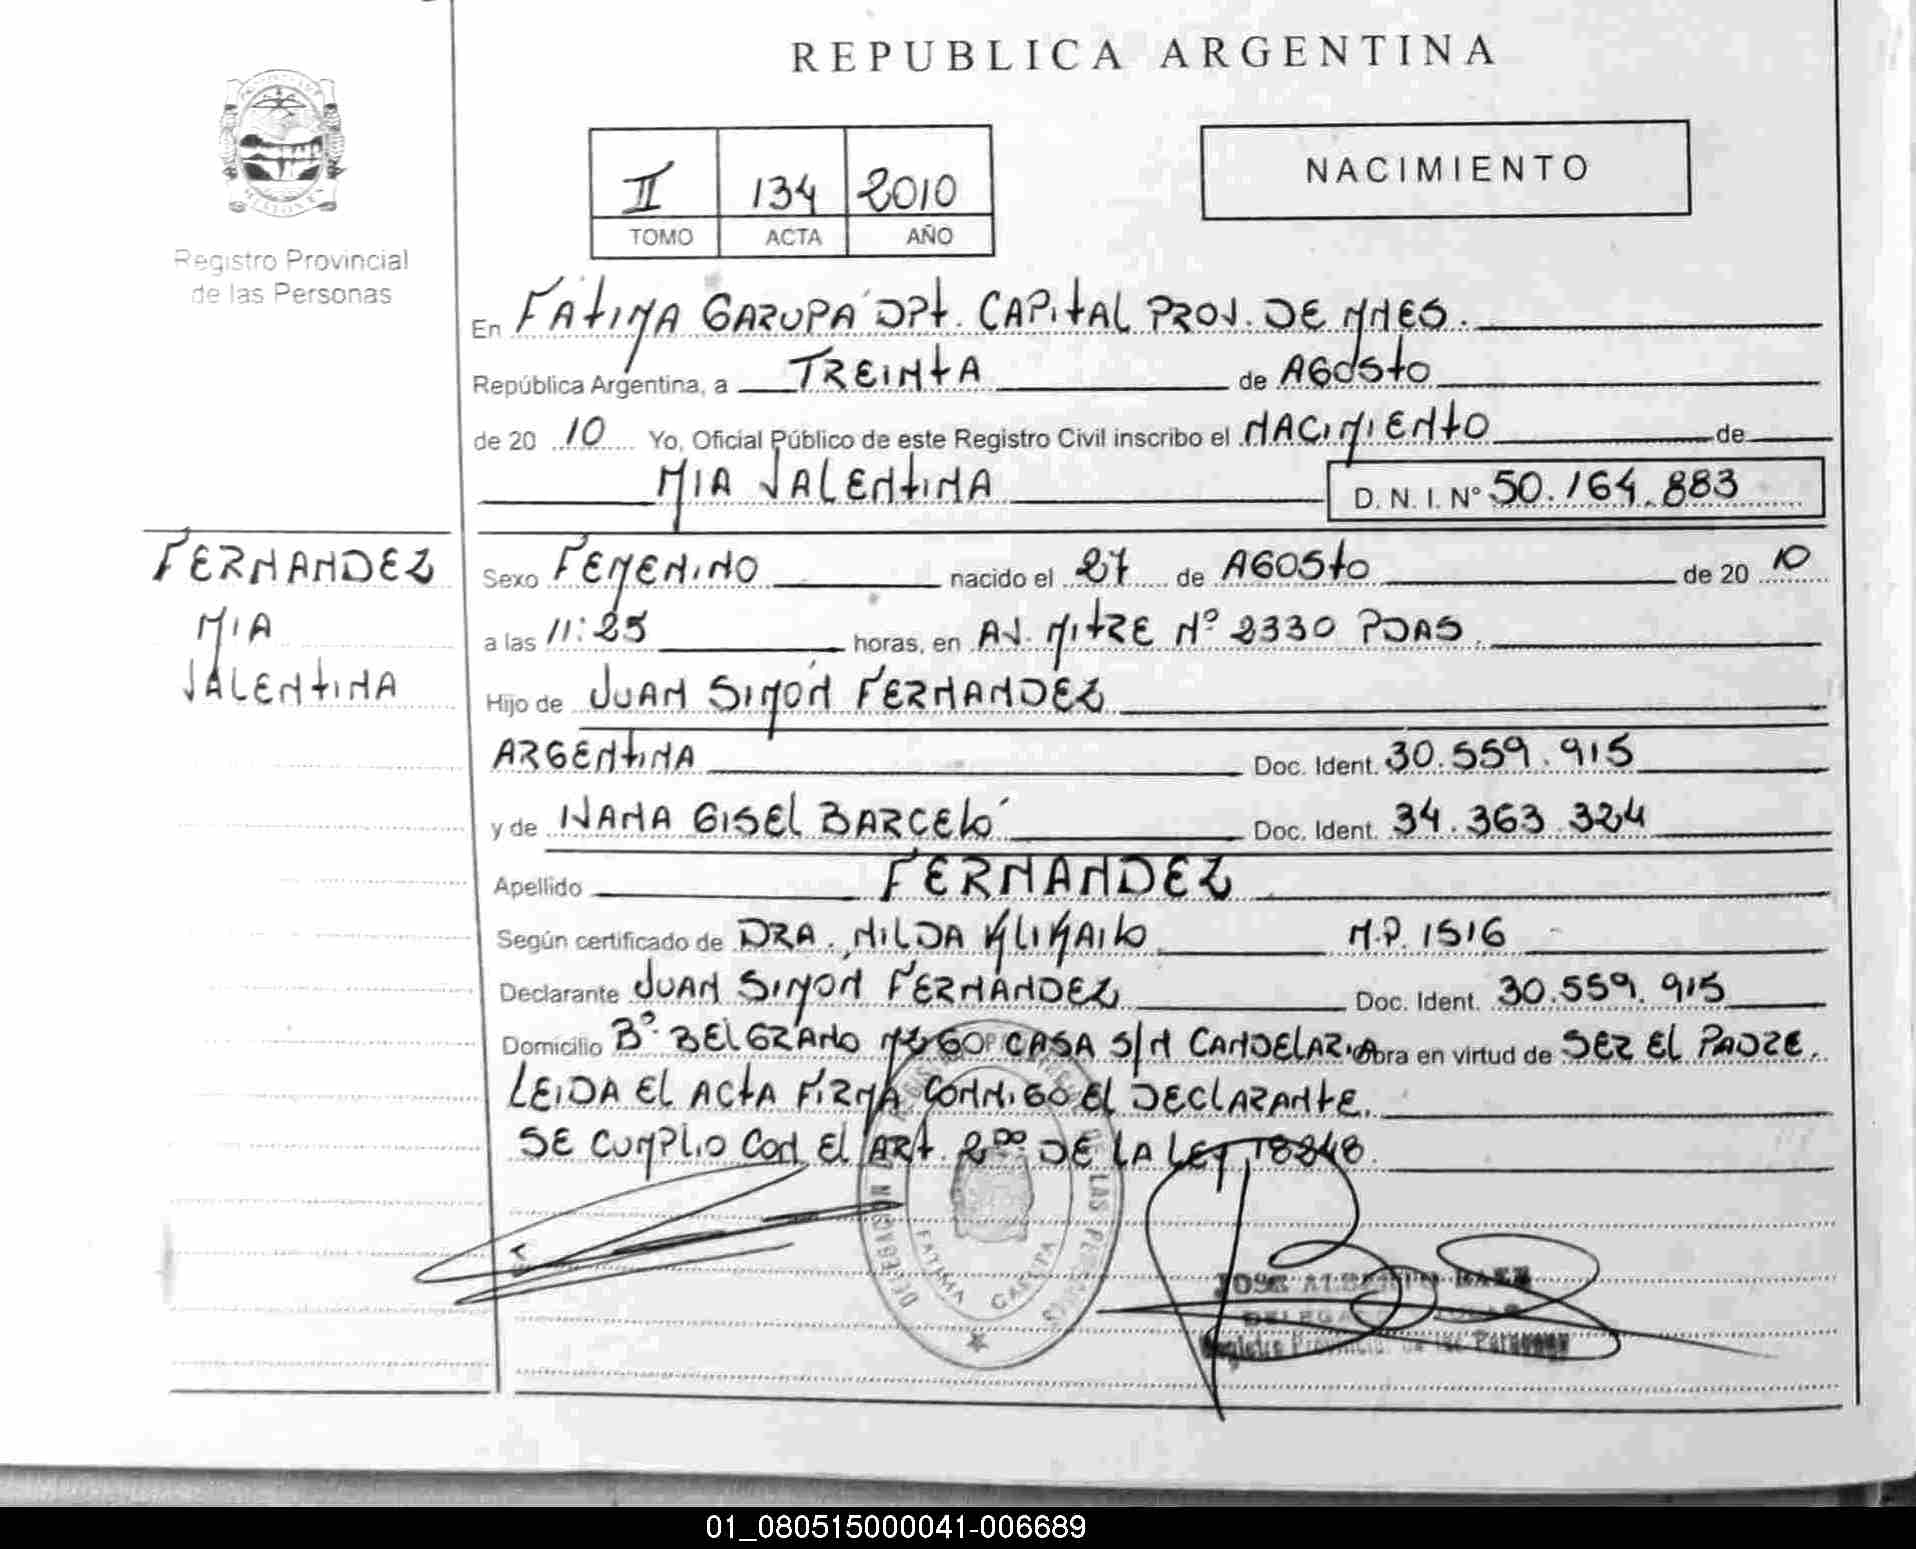 REPUBLICA ARGENTINA
Registro Provincial
de las Personas
II 134 2010
TOMO ACTA AÑO
NACIMIENTO
En FÁTIMA GARUPA DPT. CAPITAL PROV. DE MNES.
República Argentina, a TREINTA de AGOSTO
de 20 10 Yo, Oficial Público de este Registro Civil inscribo el NACIMIENTO de
MIA VALENTINA D. N. I. Nº 50.164.883
FERNANDEZ
MIA
VALENTINA
Sexo FEMENINO nacido el 27 de AGOSTO de 20 10
a las 11:25 horas, en AV. MITRE Nº 2330 PDAS.
Hijo de JUAN SIMÓN FERNANDEZ
ARGENTINA Doc. Ident. 30.559.915
y de IVANA GISEL BARCELÓ Doc. Ident. 34.363.324
Apellido FERNANDEZ
Según certificado de DRA. NILDA M.P. 1516
Declarante JUAN SIMÓN FERNÁNDEZ Doc. Ident. 30.559.915
Domicilio Bº BELGRANO CASA S/N CANDELARIA Obra en virtud de SER EL PADRE.
LEIDA EL ACTA FIRMA CONMIGO EL DECLARANTE.
SE CUMPLIO CON EL ART. 2DO DE LA LEY 18248.
DELEGACION
FATIMA GARUPA
JOSE ALBERTO BAEZ
Registro Provincial de las Personas
01_080515000041-006689